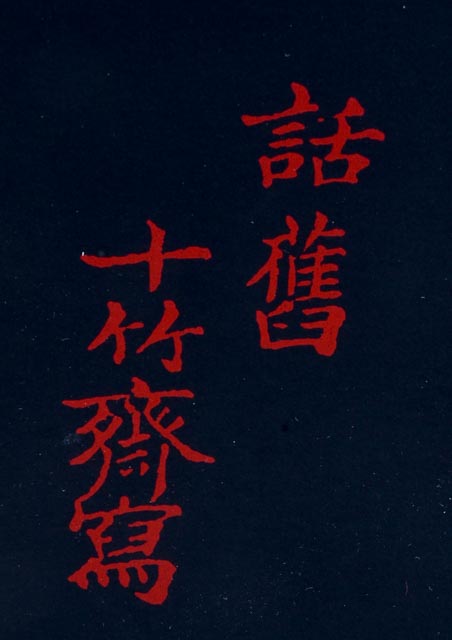 話舊
十竹齋寫